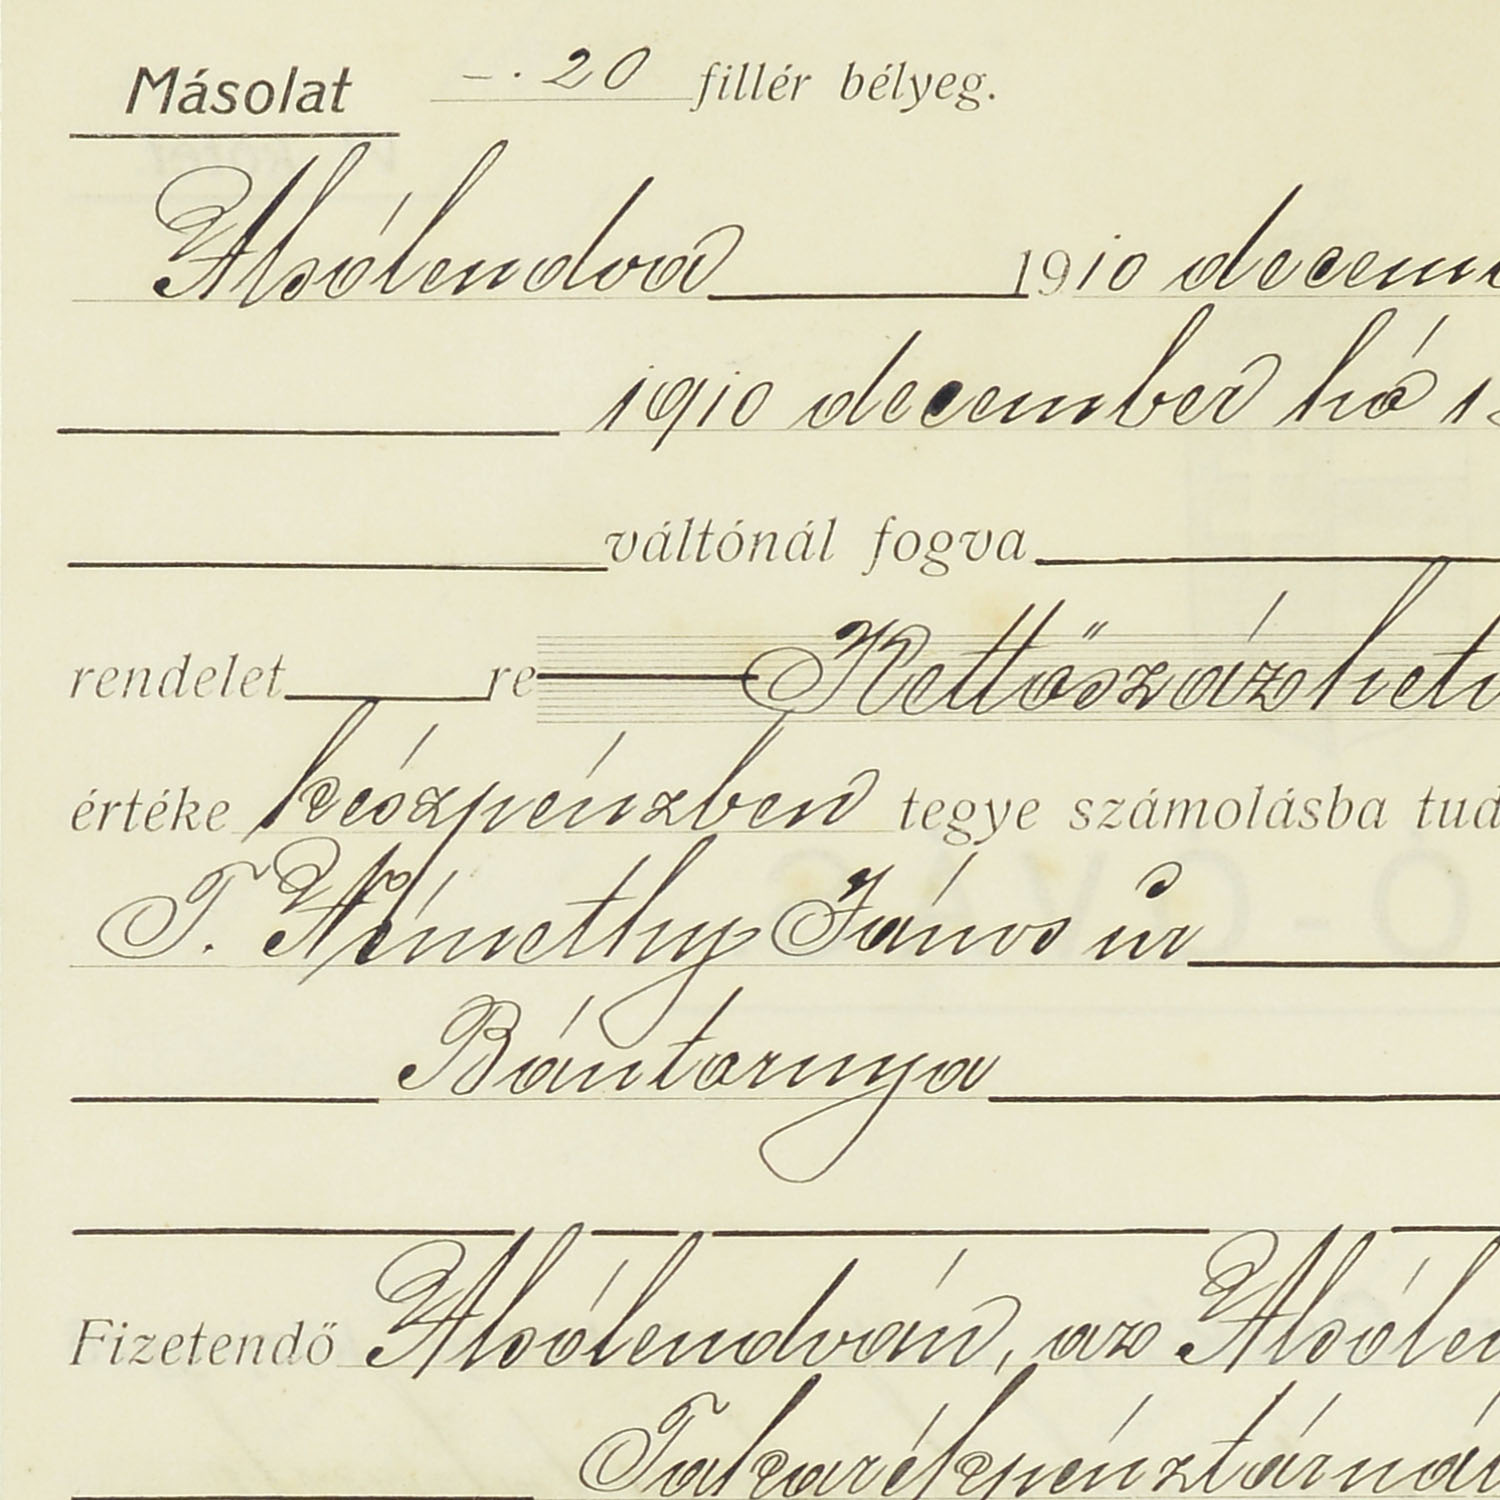 Másolat –.20 fillér bélyeg.
Alsólendva 1910 decem
1910 december hó 1
váltónál fogva
rendelet re Kettőszázhet
értéke készpénzben tegye számolásba tud
T. Némethy János úr
Bántornya
Fizetendő Alsólendván, az Alsólen
Takarékpénztárnál